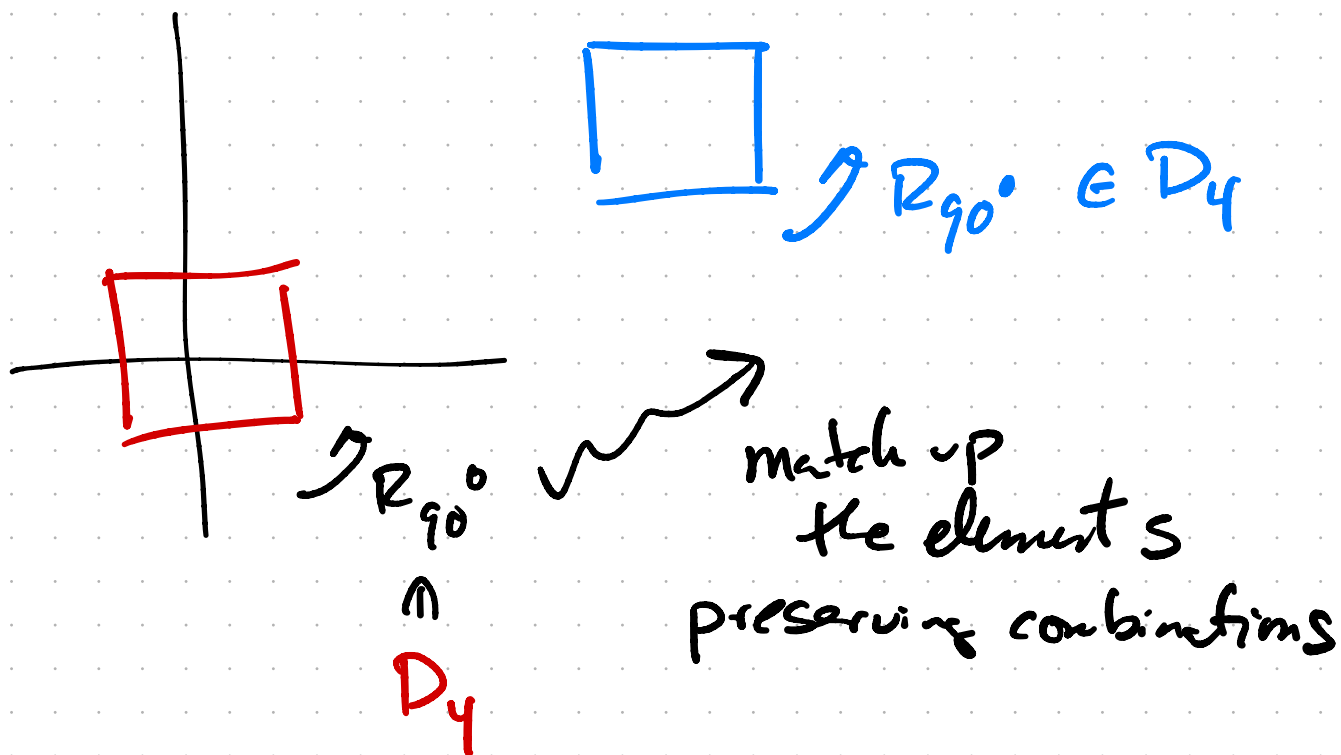 R₉₀° ∈ D₄
R₉₀°
match up
the elements
preserving combinations
∈
D₄